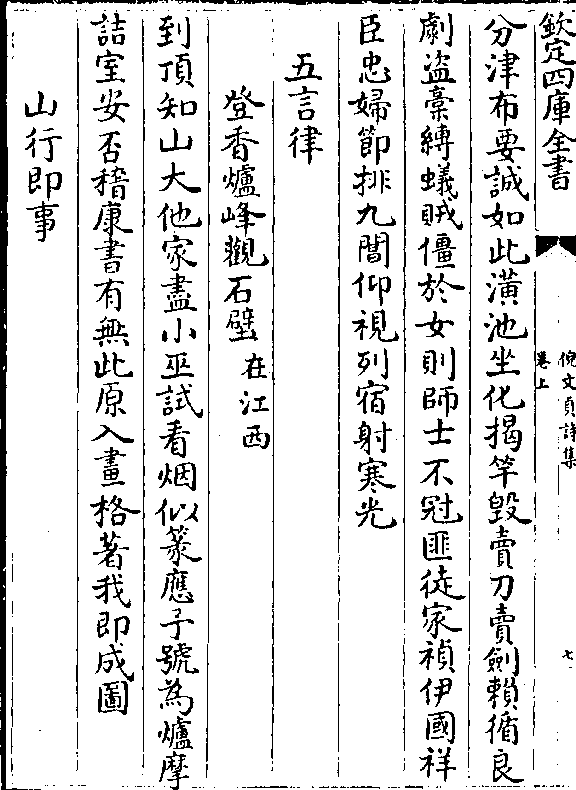 欽定四庫全書
倪文貞詩集
卷上
七
分津布要誠如此潢池坐化揭竿毀賣刀賣劍賴循良
劇盜稾縛蟻賊僵於女則師士不冠匪徒家禎伊國祥
臣忠婦節排九閽仰視列宿射寒光
五言律
登香爐峰觀石壁在江西
到頂知山大他家盡小巫試看烟似篆應予號為爐摩
詰室安否嵇康書有無此原入畫格著我即成圖
山行即事